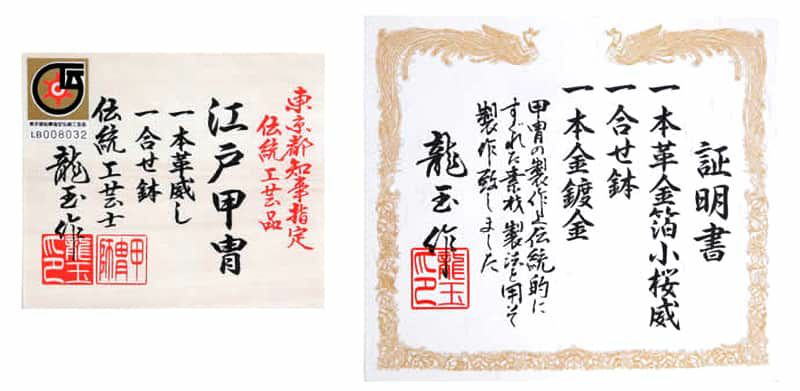 東京都知事指定
伝統工芸品
江戸甲冑
一本革威し
一合せ鉢
伝統工芸士
龍玉作
甲冑師
龍玉
伝
LB008032
証明書
一本革金箔小桜威
一合せ鉢
一本金鍍金
甲冑の製作上伝統的に
すぐれた素材製法を用て
製作致しました
龍玉作
龍玉